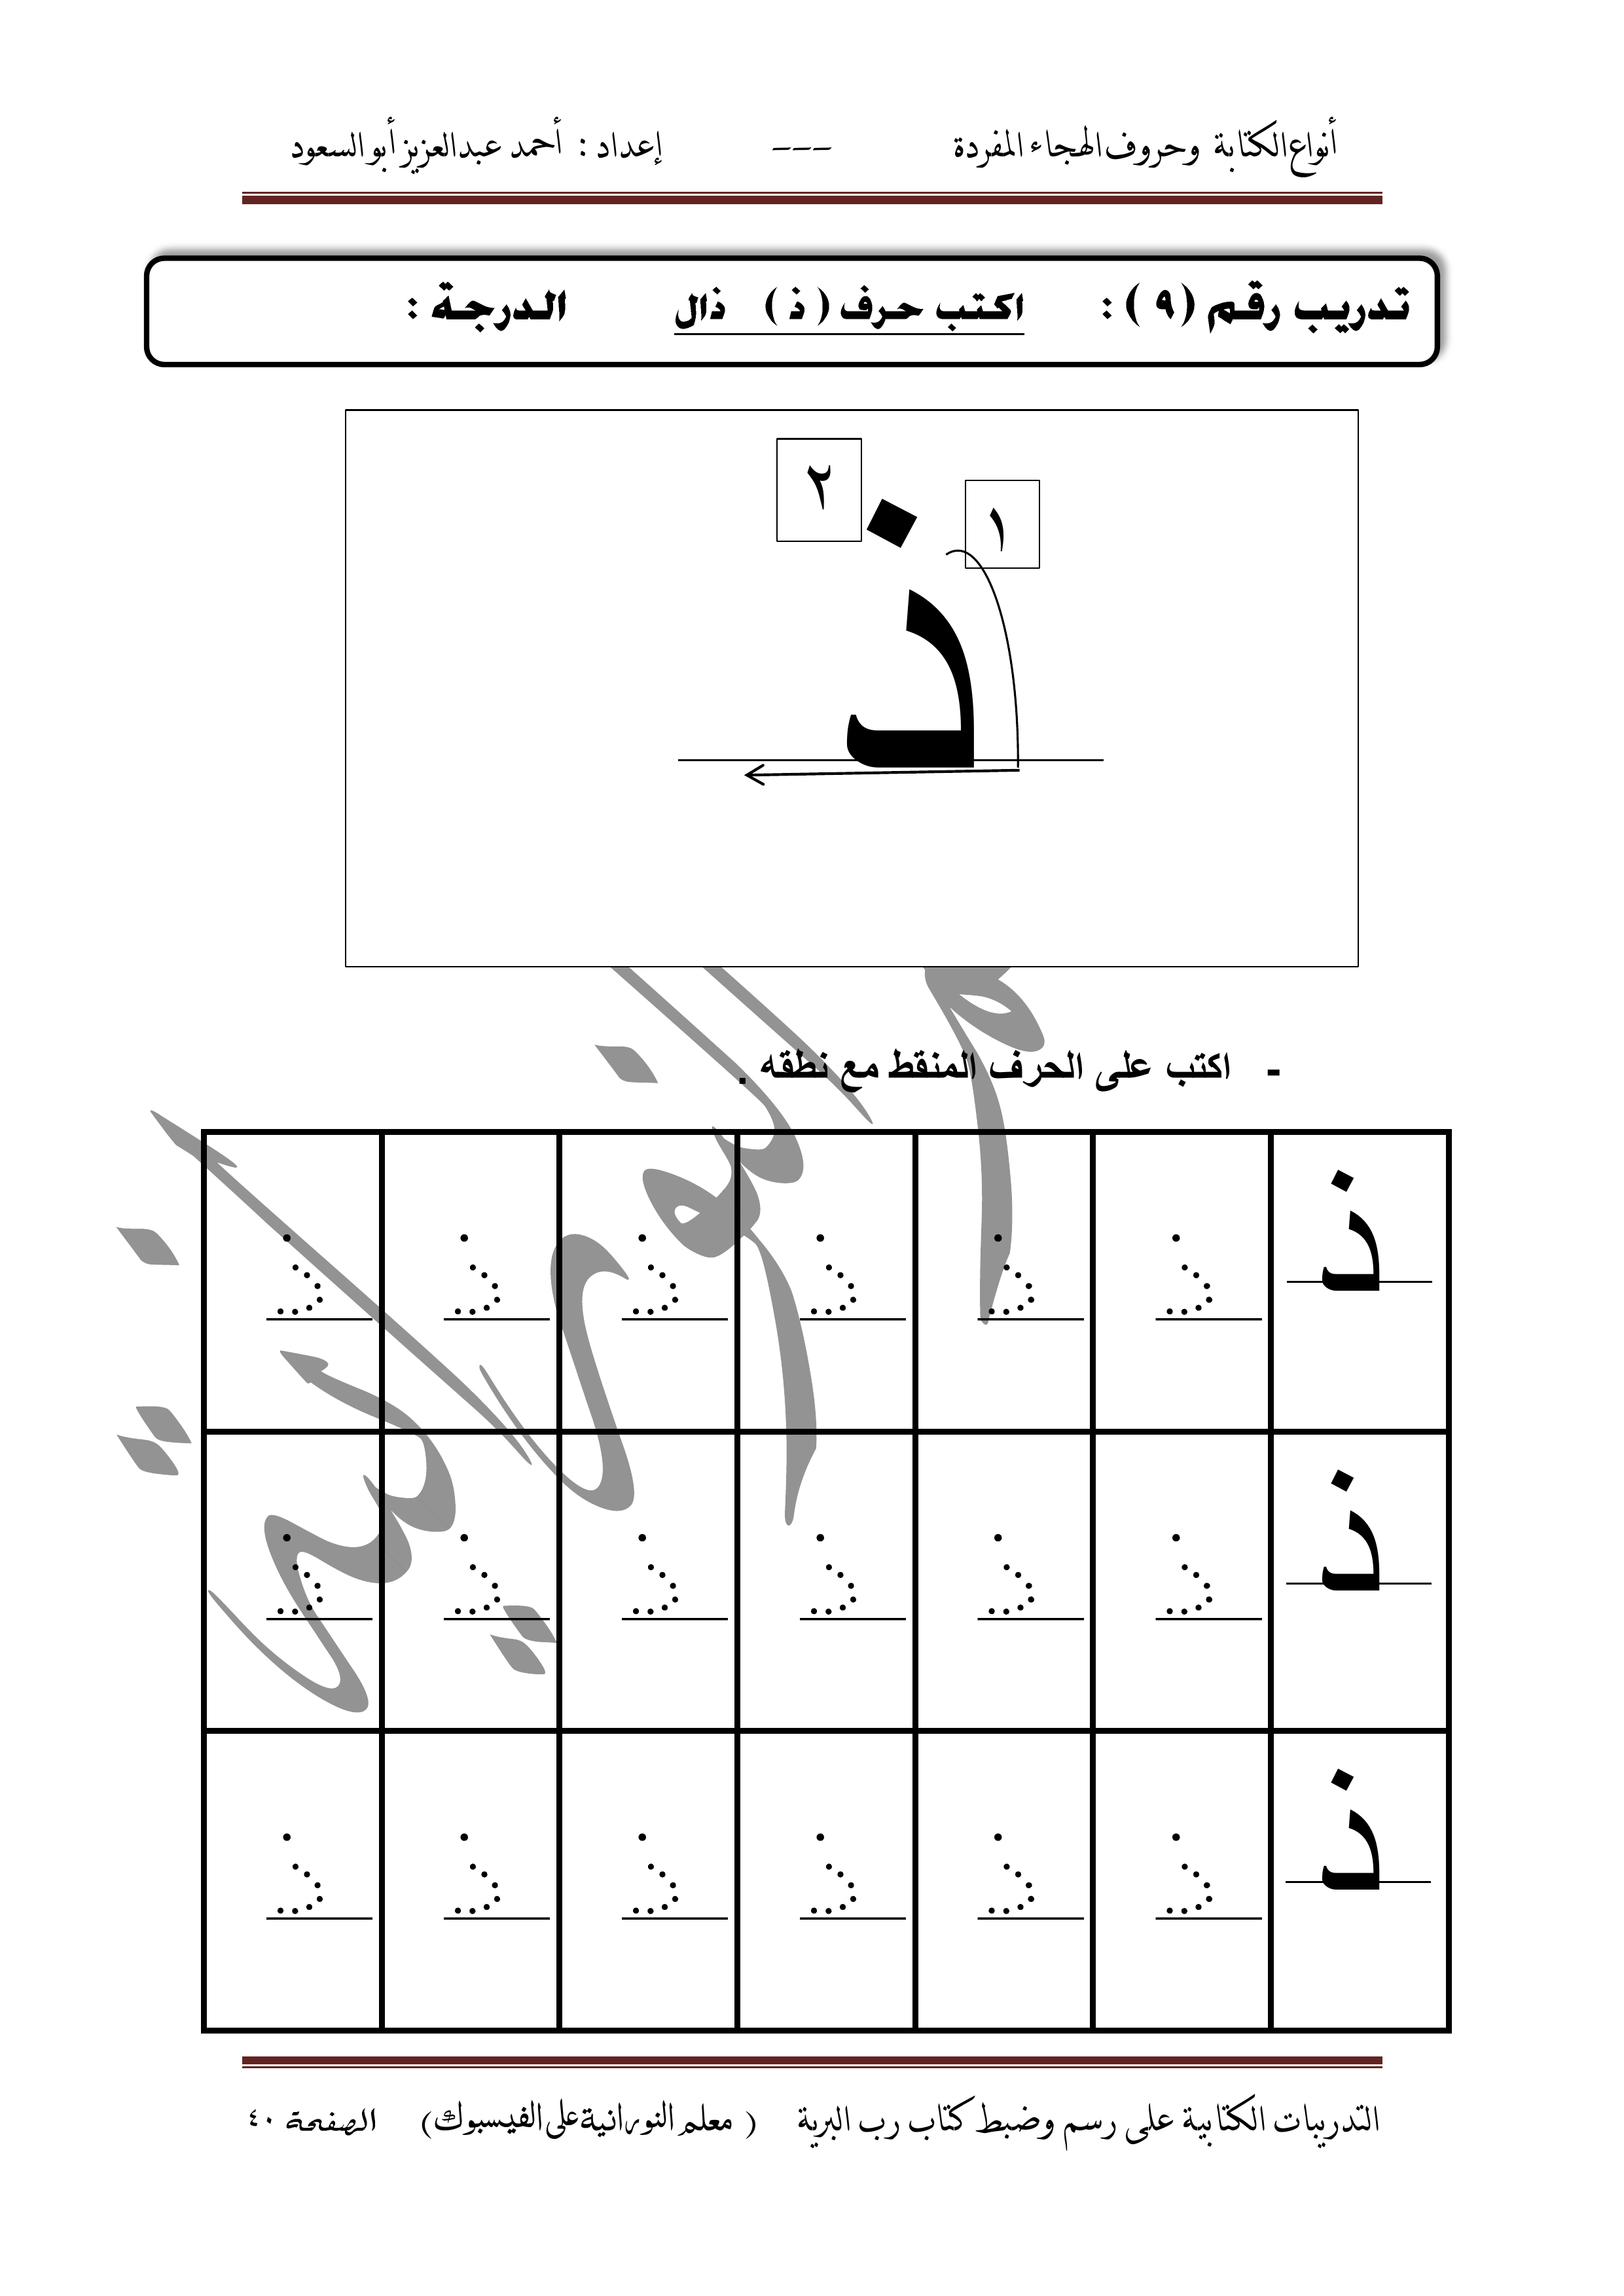 أنواع الكتابة وحروف الهجاء المفردة --- إعداد : أحمد عبدالعزيز أبو السعود
تدريب رقم ( ٩ ) : اكتب حرف ( ذ ) ذال الدرجة :
٢ ١
ذ
- اكتب على الحرف المنقط مع نطقه .
ذ ذ ذ ذ ذ ذ ذ
ذ ذ ذ ذ ذ ذ ذ
ذ ذ ذ ذ ذ ذ ذ
التدريبات الكتابية على رسم وضبط كتاب رب البرية ( معلم النورانية على الفيسبوك) الصفحة ٤٠